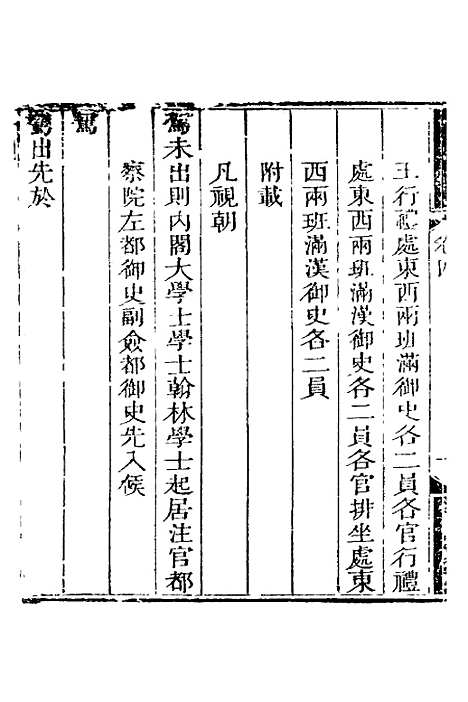 王行禮處東西兩班滿御史各二員各官行禮
處東西兩班滿漢御史各二員各官排坐處東
西兩班滿漢御史各二員
附載
凡視朝
駕未出則内閣大學士學士翰林學士起居注官都
察院左都御史副僉都御史先入候
駕
駕出先於
卷四